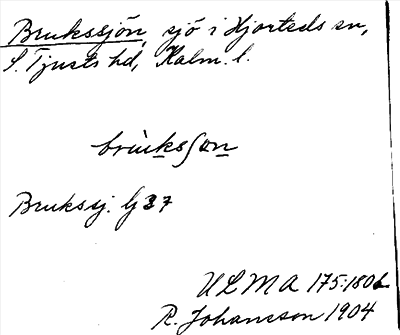 Brukssjön, sjö i Hjorteds sn,
S. Tjusts hd, Kalm. l.
brùksʃөn
Brukssj. Gj 37
ULMA 175:180b
R. Johansson 1904